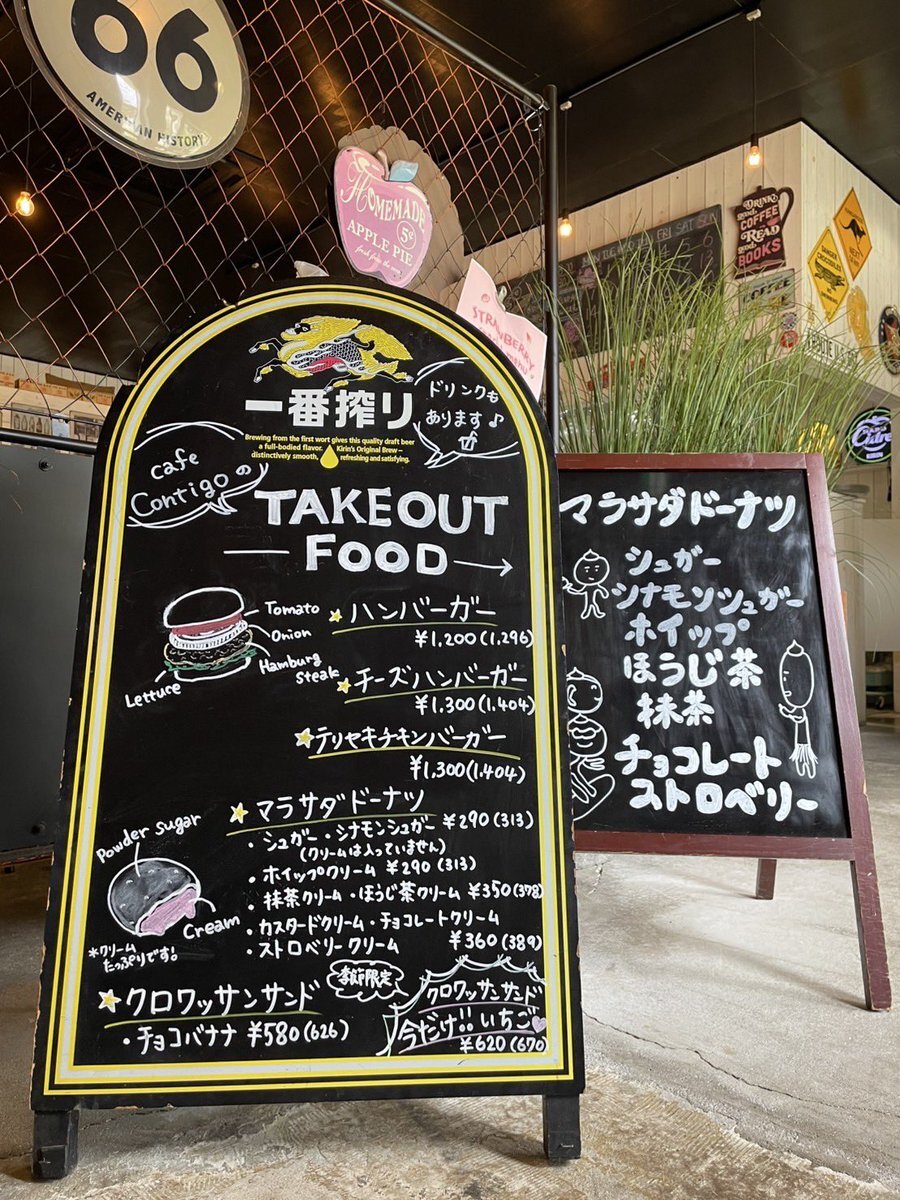 66
AMERICAN HISTORY
HOMEMADE
5¢
APPLE PIE
fresh from the oven
STRAWBERRY
menu
DRINK
good
COFFEE
READ
good
BOOKS
FRI SAT SUN
一番搾り
Brewing from the first wort gives this quality draft beer
a full-bodied flavor. Kirin's Original Brew –
distinctively smooth, refreshing and satisfying.
ドリンクも
あります♪
cafe
Contigoの
TAKEOUT
FOOD
Tomato
Onion
Hamburg
steak
Lettuce
ハンバーガー
¥1,200(1,296)
チーズハンバーガー
¥1,300(1,404)
テリヤキチキンバーガー
¥1,300(1,404)
マラサダドーナツ
・シュガー・シナモンシュガー ¥290(313)
(クリームは入っていません)
・ホイップクリーム ¥290(313)
・抹茶クリーム・ほうじ茶クリーム ¥350(378)
・カスタードクリーム・チョコレートクリーム
・ストロベリークリーム ¥360(389)
Powder sugar
Cream
*クリーム
たっぷりです!
クロワッサンサンド
・チョコバナナ ¥580(626)
季節限定
クロワッサンサンド
今だけ!! いちご
¥620(670)
マラサダドーナツ
シュガー
シナモンシュガー
ホイップ
ほうじ茶
抹茶
チョコレート
ストロベリー